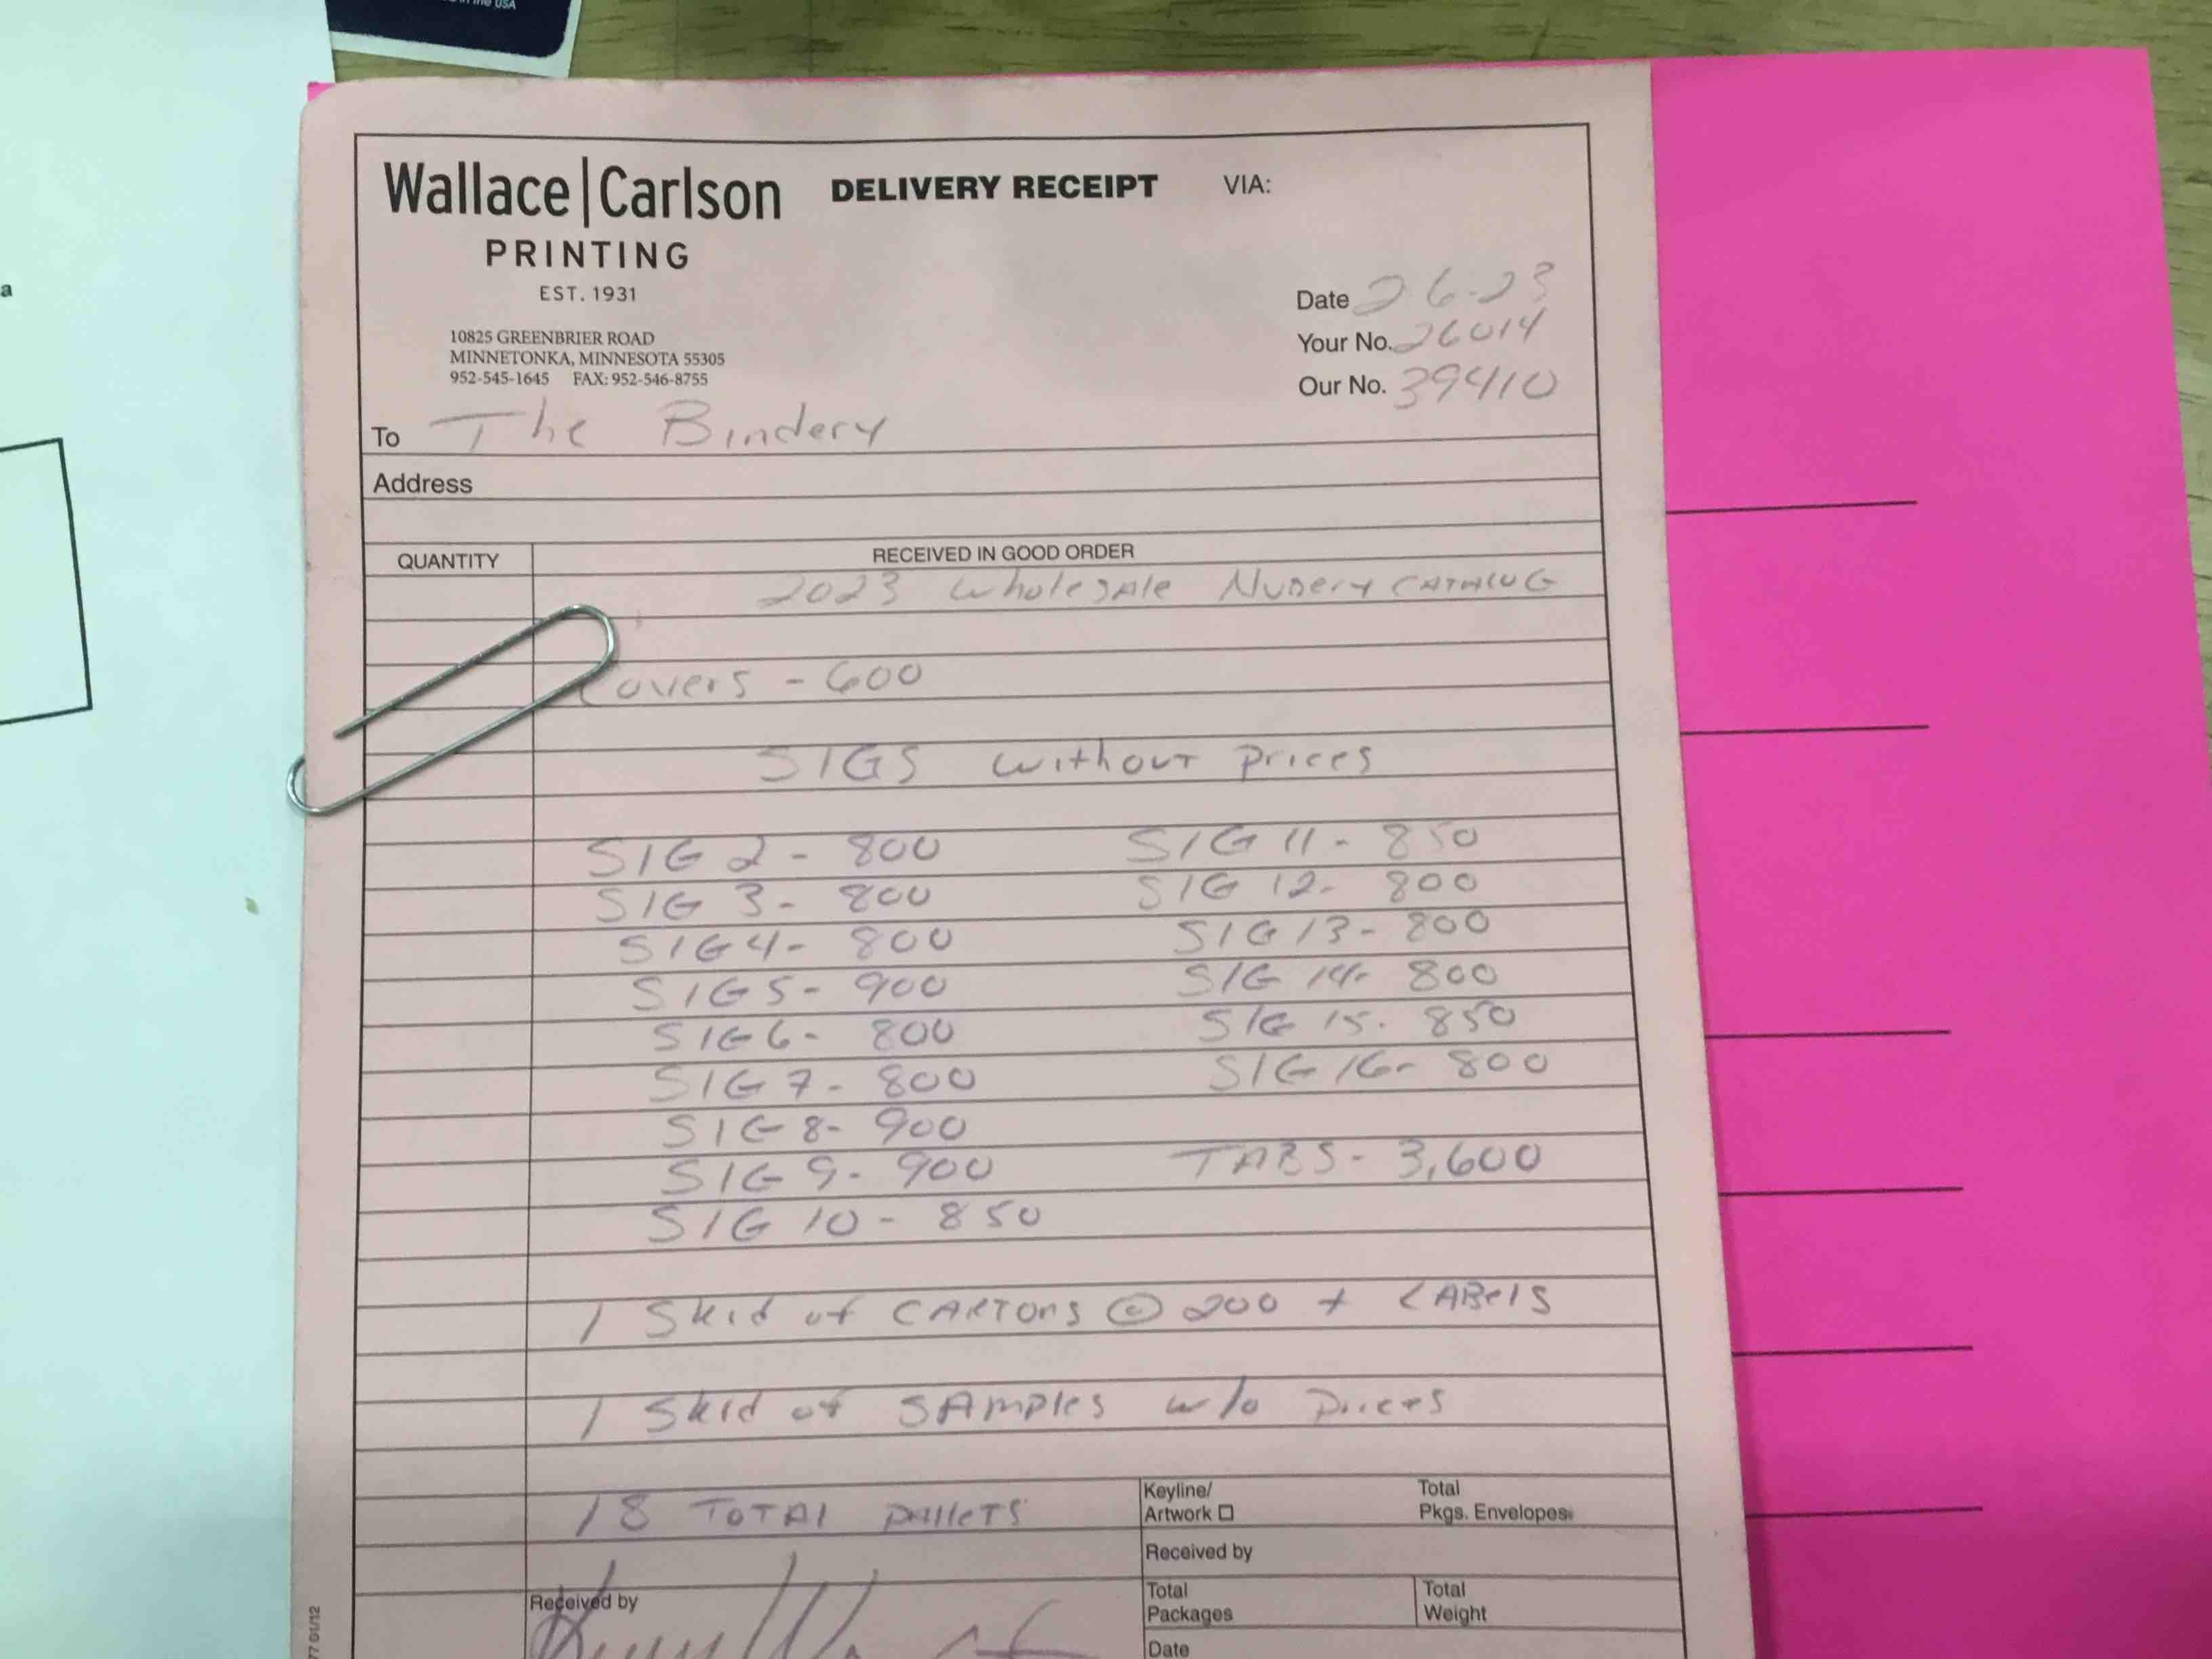 in the USA
a
Wallace|Carlson DELIVERY RECEIPT VIA:
PRINTING
EST. 1931
10825 GREENBRIER ROAD
MINNETONKA, MINNESOTA 55305
952-545-1645 FAX: 952-546-8755
Date 2 6-23
Your No. 26014
Our No. 39410
To The Bindery
Address
QUANTITY RECEIVED IN GOOD ORDER
2023 Wholesale Nursery CATALOG
Covers - 600
SIGS without Prices
SIG 2 - 800 SIG 11 - 850
SIG 3 - 800 SIG 12 - 800
SIG 4 - 800 SIG 13 - 800
SIG 5 - 900 SIG 14 - 800
SIG 6 - 800 SIG 15 - 850
SIG 7 - 800 SIG 16 - 800
SIG 8 - 900
SIG 9 - 900 TABS - 3,600
SIG 10 - 850
1 Skid of CARTONS @ 200 + LABELS
1 Skid of SAMPLES w/o Prices
18 TOTAL PALLETS
Keyline/
Artwork
Total
Pkgs. Envelopes
Received by
Received by
Total
Packages
Total
Weight
Date
77 01/12